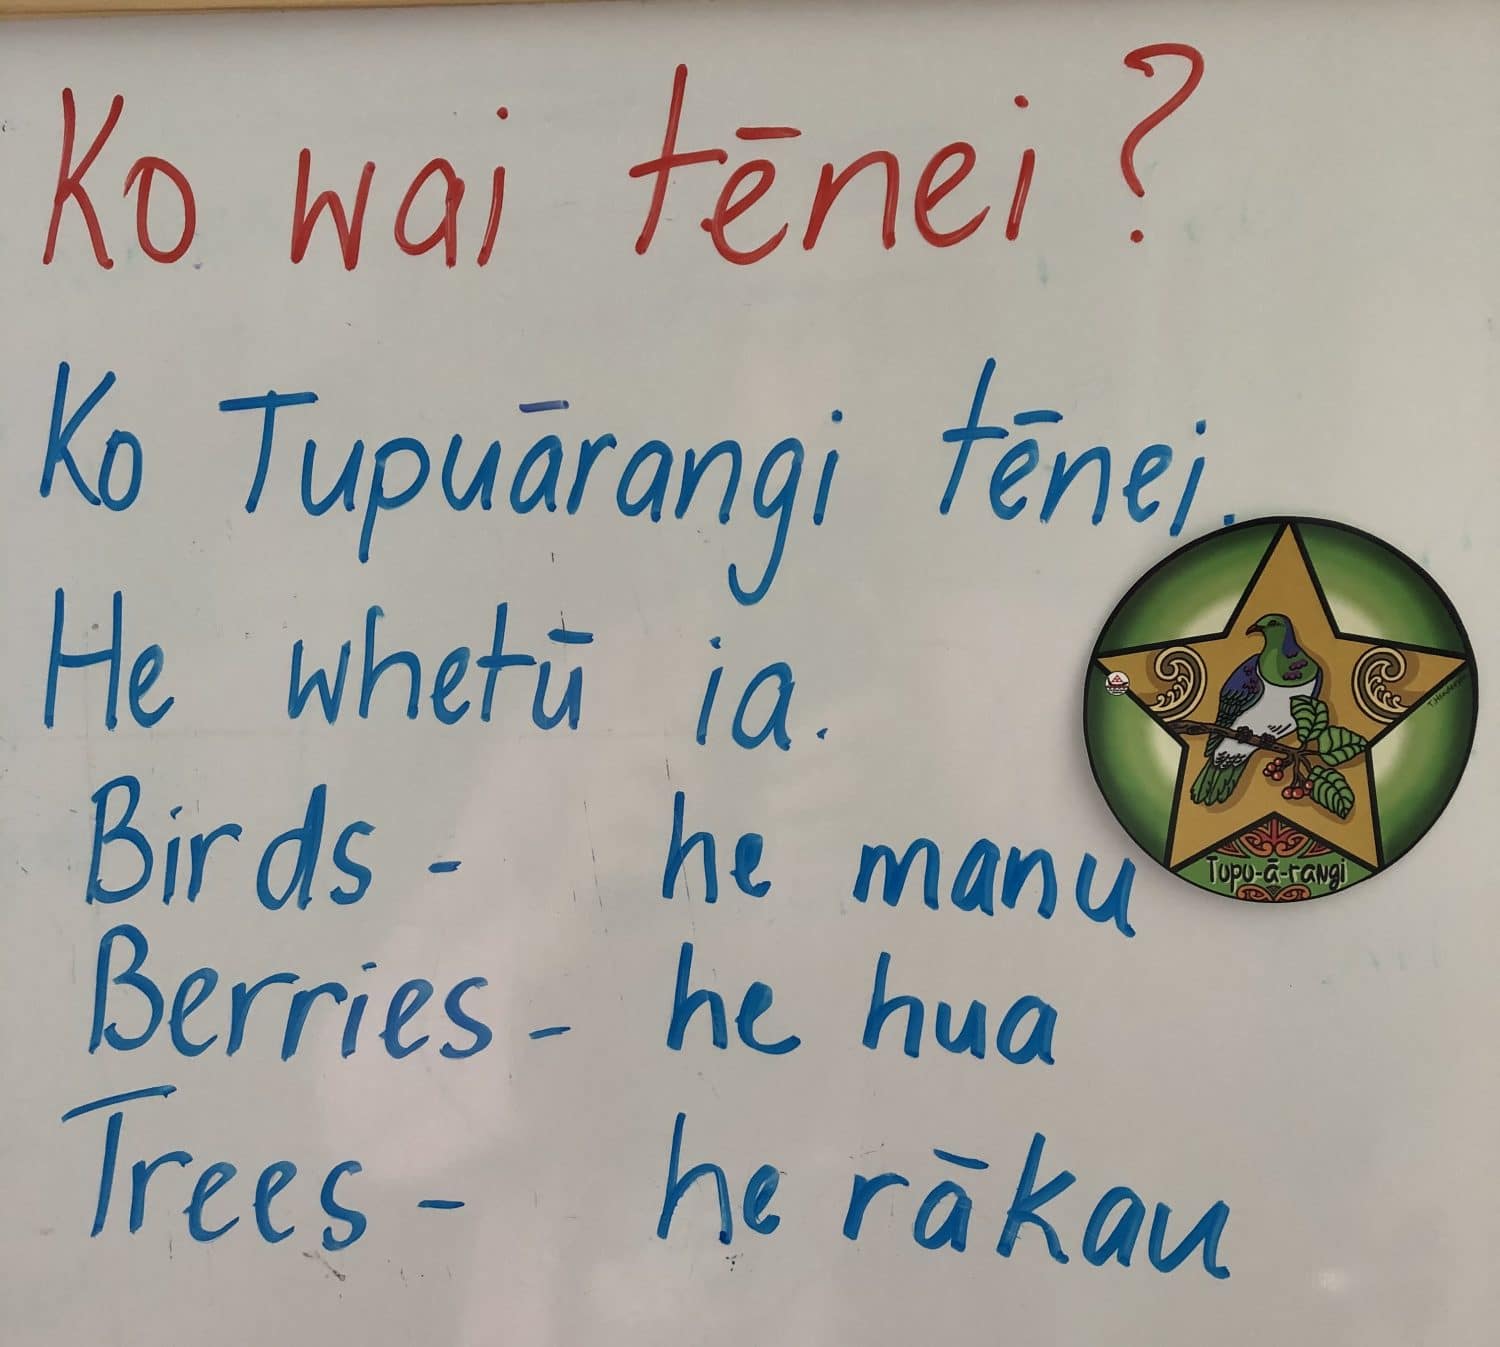 Ko wai tēnei?
Ko Tupuārangi tēnei.
He whetū ia.
Birds - he manu
Berries - he hua
Trees - he rākau
Tupu-ā-rangi